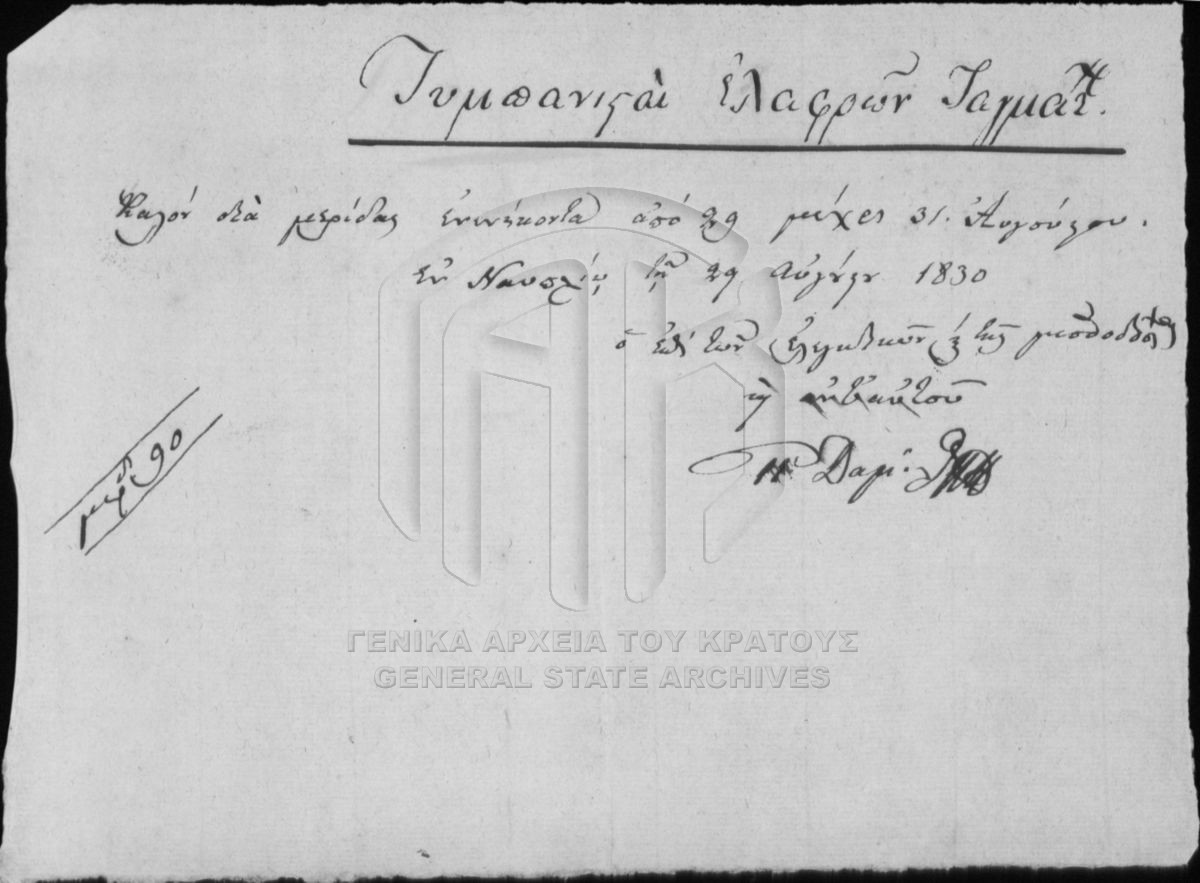 Τυμπανισταὶ ἐλαφρῶν Ταγμάτ.
Καλὸν διὰ μερίδας ἐννενήκοντα ἀπό 29 μέχρι 31. Αὐγούστου.
ἐν Ναυπλίῳ τῇ 29 Αὐγούστου 1830
ὁ ἐπὶ τῶν ἐλεγκτικῶν ἐξ τῆς μισθοδοσίας
μερ. 90
ΓΕΝΙΚΑ ΑΡΧΕΙΑ ΤΟΥ ΚΡΑΤΟΥΣ
GENERAL STATE ARCHIVES